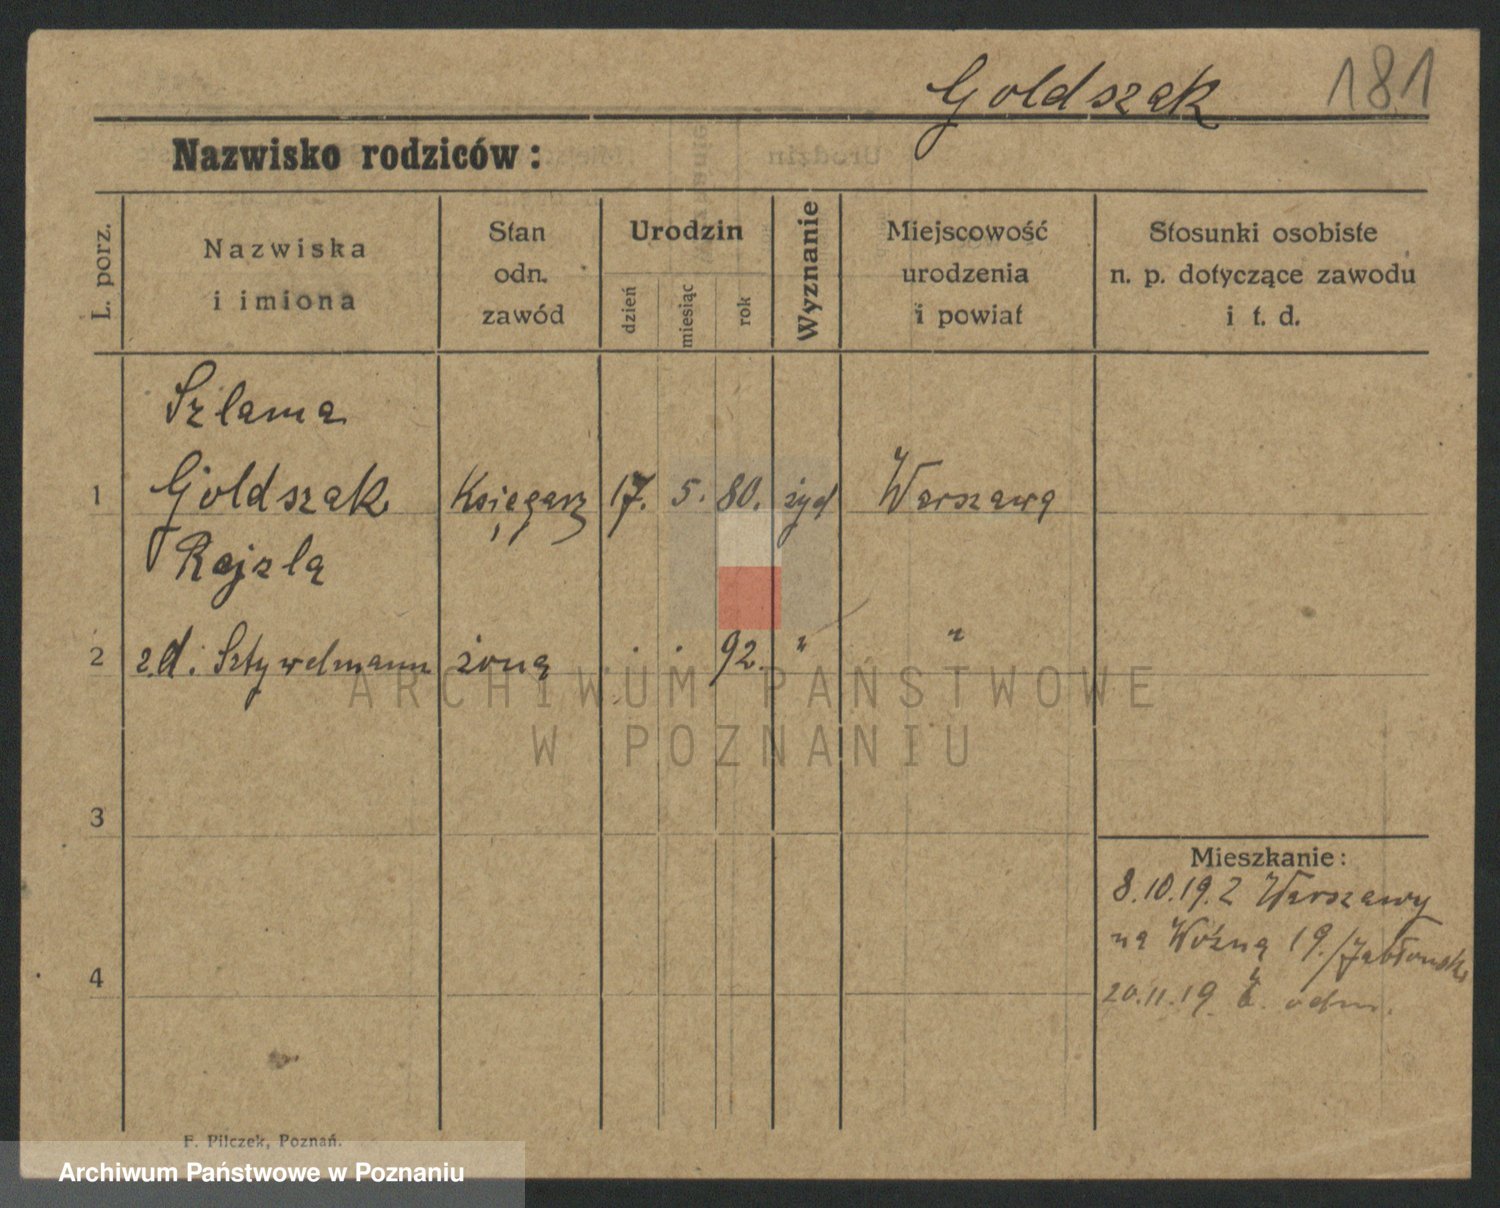 Goldszak 181
Nazwisko rodziców:
L. porz.
Nazwiska
i imiona
Stan
odn.
zawód
Urodzin
dzień
miesiąc
rok
Wyznanie
Miejscowość
urodzenia
i powiat
Stosunki osobiste
n. p. dotyczące zawodu
i t. d.
Szlama
1 Goldszak Księgarz 17. 5. 80. żyd Warszawa
Rajzla
2 z.d. Sztywelmann żona . . 92. " "
3
Mieszkanie:
8.10.19. z Warszawy
na Woźną 19./Jabłonski
4
20.11.19. odm.
F. Pilczek, Poznań.
ARCHIWUM PAŃSTWOWE
W POZNANIU
Archiwum Państwowe w Poznaniu